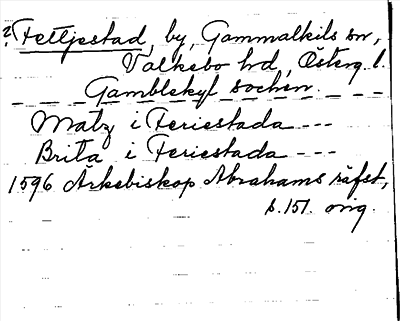 ? Fettjestad, by, Gammalkils sn,
Valkebo hd, Österg. l.
Gamblekyl sochen.
Matz i Feriestada ---
Brita i Feriestada ---
1596 Ärkebiskop Abrahams räfst,
s. 151. orig.